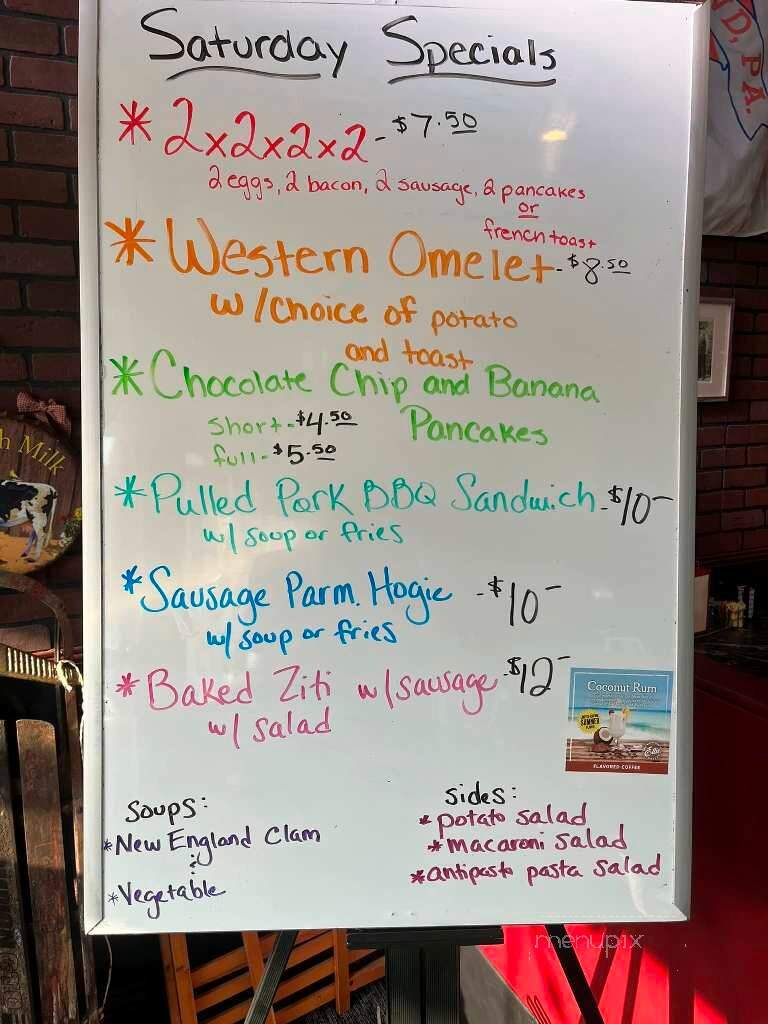 Saturday Specials
* 2x2x2x2 - $7.50
2 eggs, 2 bacon, 2 sausage, 2 pancakes
or
french toast
* Western Omelet - $8.50
w/choice of potato
and toast
* Chocolate Chip and Banana
Pancakes
short - $4.50
full - $5.50
* Pulled Pork BBQ Sandwich - $10-
w/ soup or fries
* Sausage Parm. Hogie - $10-
w/ soup or fries
* Baked Ziti w/sausage - $12-
w/ salad
Coconut Rum
SUMMER
FLAVORED COFFEE
soups:
* New England Clam
&
* Vegetable
sides:
* potato salad
* macaroni salad
* antipasto pasta salad
h Milk
D, PA.
menupix